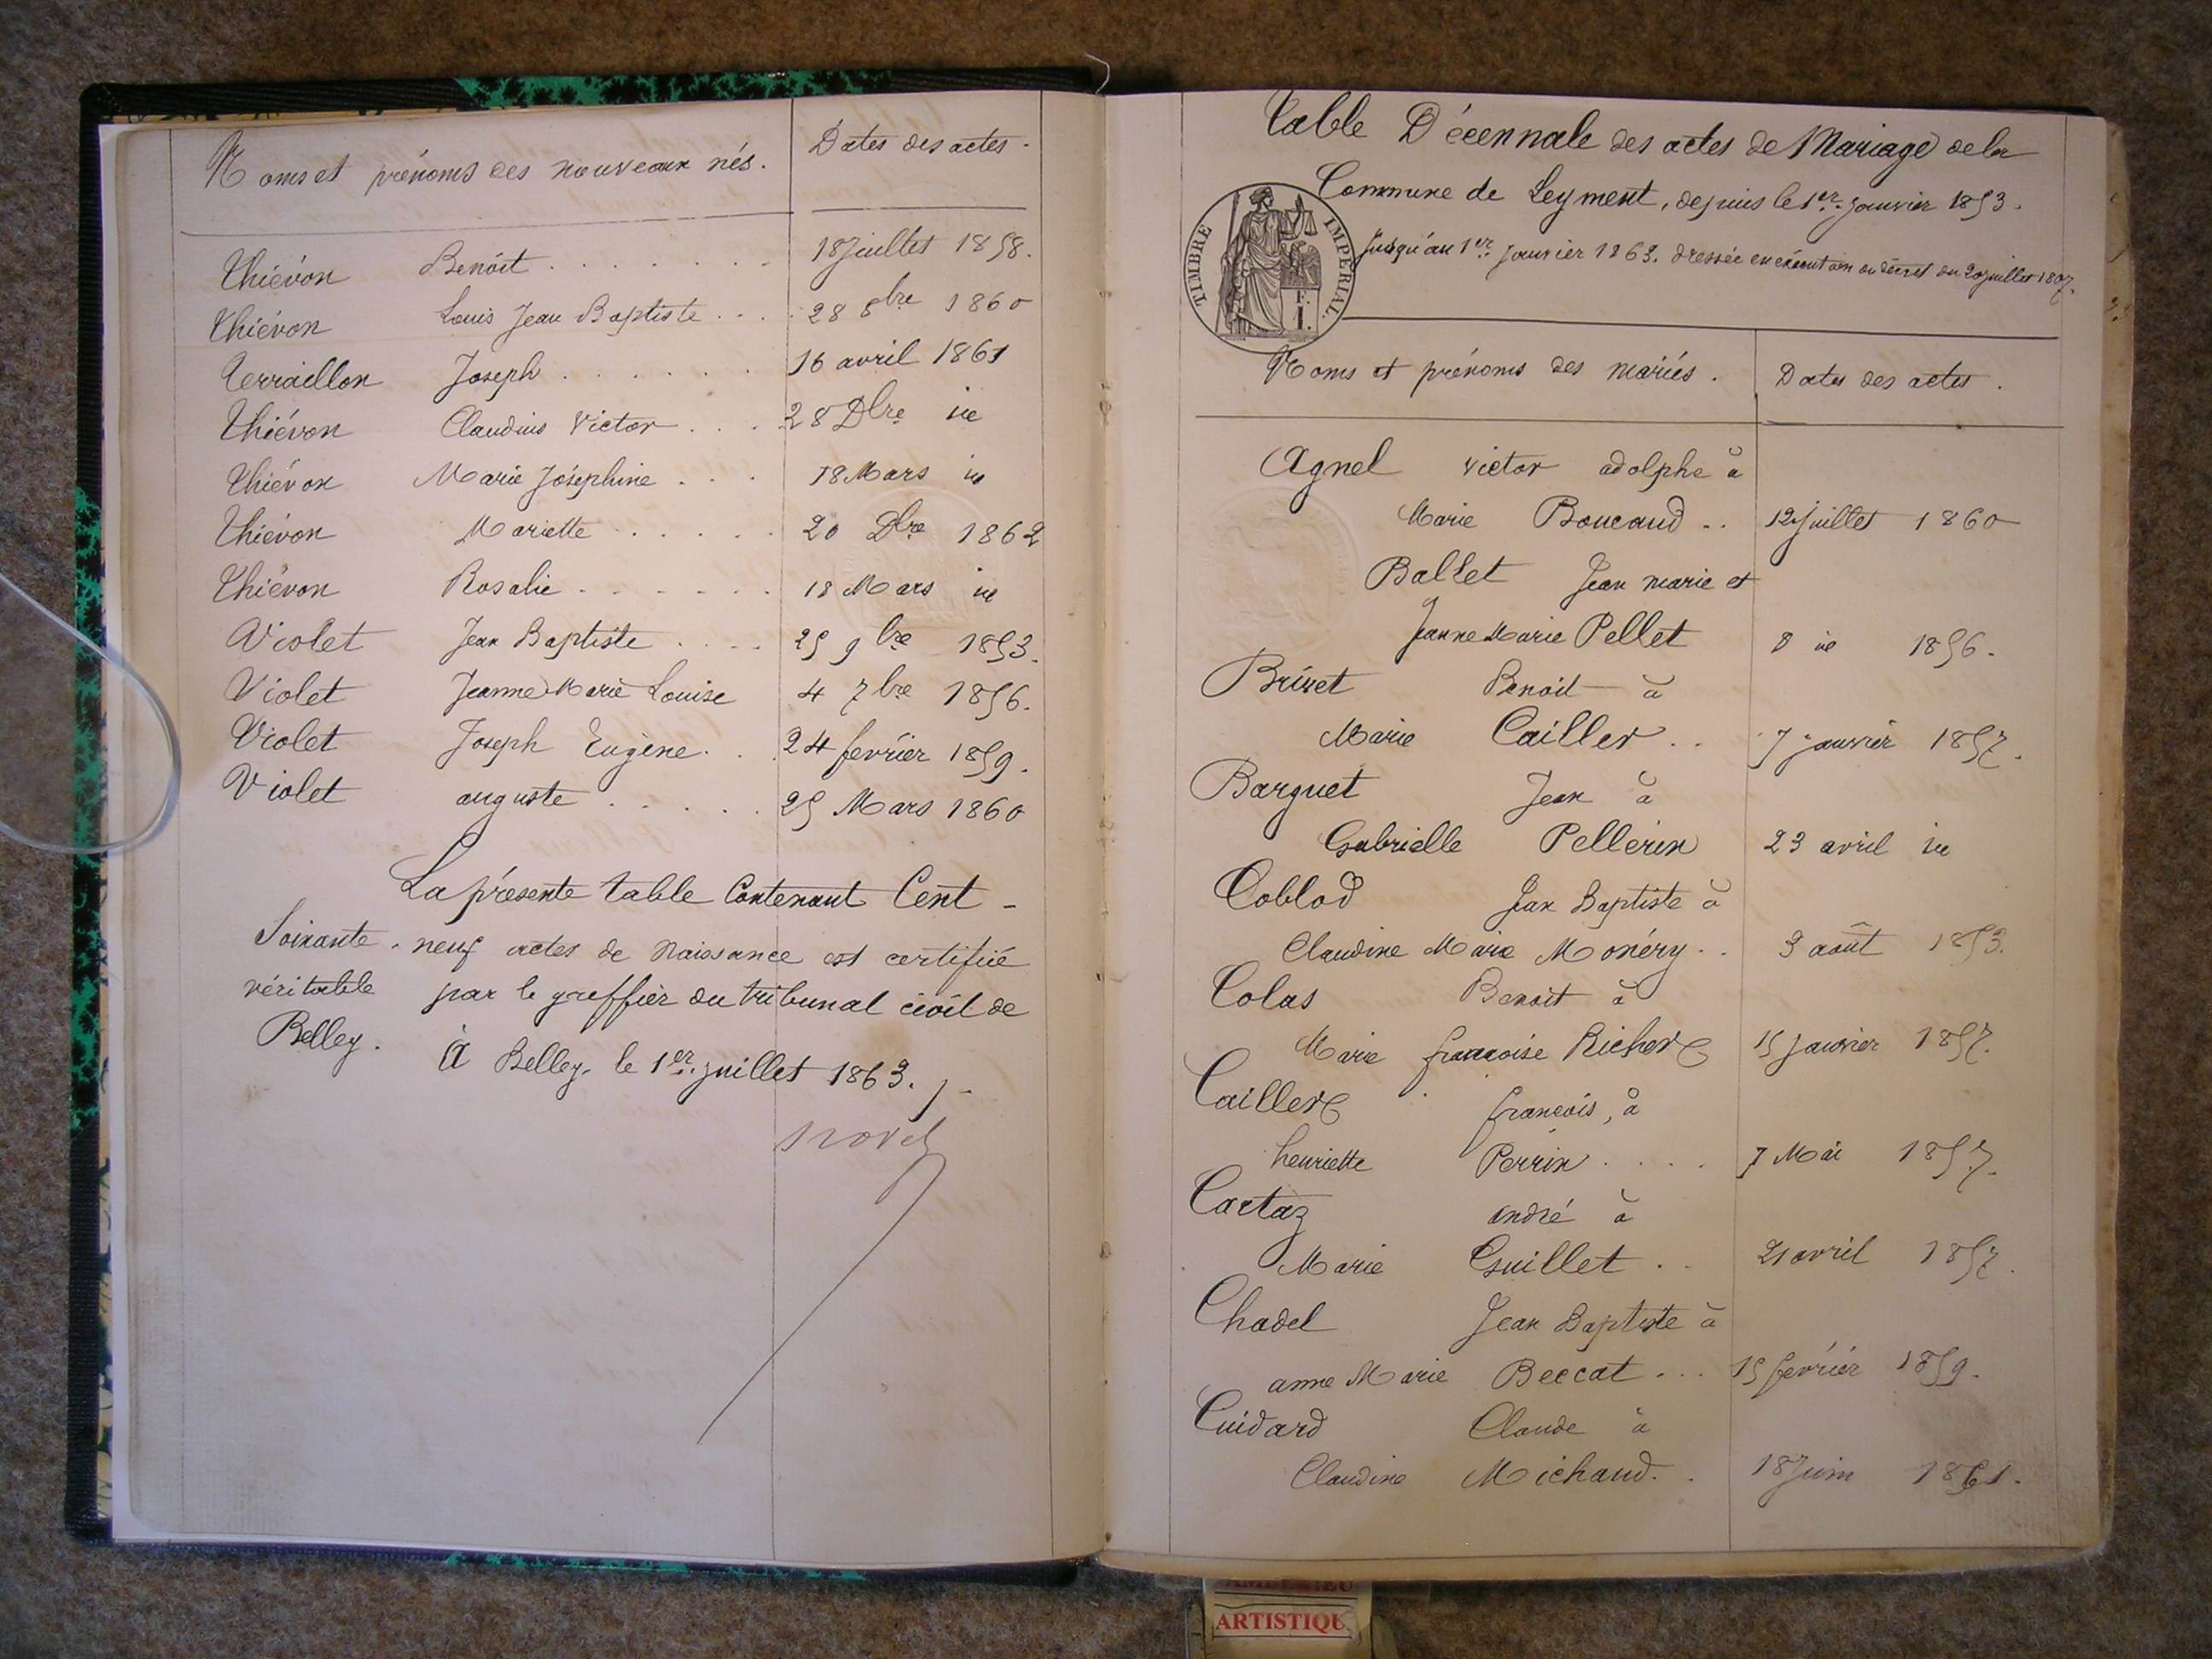 Noms et prénoms des nouveaux nés. Dates des actes.
Thiévon Benoit 18 Juillet 1858.
Thiévon Louis Jean Baptiste 28 8bre 1860
Terraillon Joseph 16 avril 1861
Thiévon Claudius Victor 28 Dbre id
Thiévon Marie Joséphine 18 Mars id
Thiévon Mariette 20 Dbre 1862
Thiévon Rosalie 18 Mars id
Violet Jean Baptiste 25 9bre 1853.
Violet Jeanne Marie Louise 4 7bre 1856.
Violet Joseph Eugène 24 fevrier 1859.
Violet auguste 25 Mars 1860
La présente table Contenant Cent
Soixante-neuf actes de Naissance est certifiée
véritable par le greffier du tribunal civil de
Belley.
À Belley, le 1er. juillet 1863.
Table Décennale des actes de Mariage de la
Commune de Leyment, depuis le 1er. Janvier 1853.
Jusqu'au 1er Janvier 1863. dressée en exécution du décret du 20 juillet 1807.
TIMBRE IMPERIAL.
F.
I.
Noms et prénoms des mariés. Dates des actes.
Agnel victor adolphe à
Marie Boucaud .. 12 Juillet 1860
Ballet Jean marie et
Jeanne Marie Pellet 8 id 1856.
Brivet Benoit à
Marie Cailler .. 7 janvier 1857.
Barguet Jean à
Gabrielle Pellerin 23 avril id
Coblod Jean Baptiste à
Claudine Marie Monéry .. 3 août 1853.
Colas Benoit à
Marie françoise Richer 15 Janvier 1857.
Cailler françois, à
henriette Perrin .... 7 Mai 1857.
Cartaz andré à
Marie Guillet .. 21 avril 1857.
Chadel Jean Baptiste à
anne Marie Beccat ... 15 février 1859.
Cuidard Claude à
Claudine Michaud .. 18 Juin 1861.
ARTISTIQU